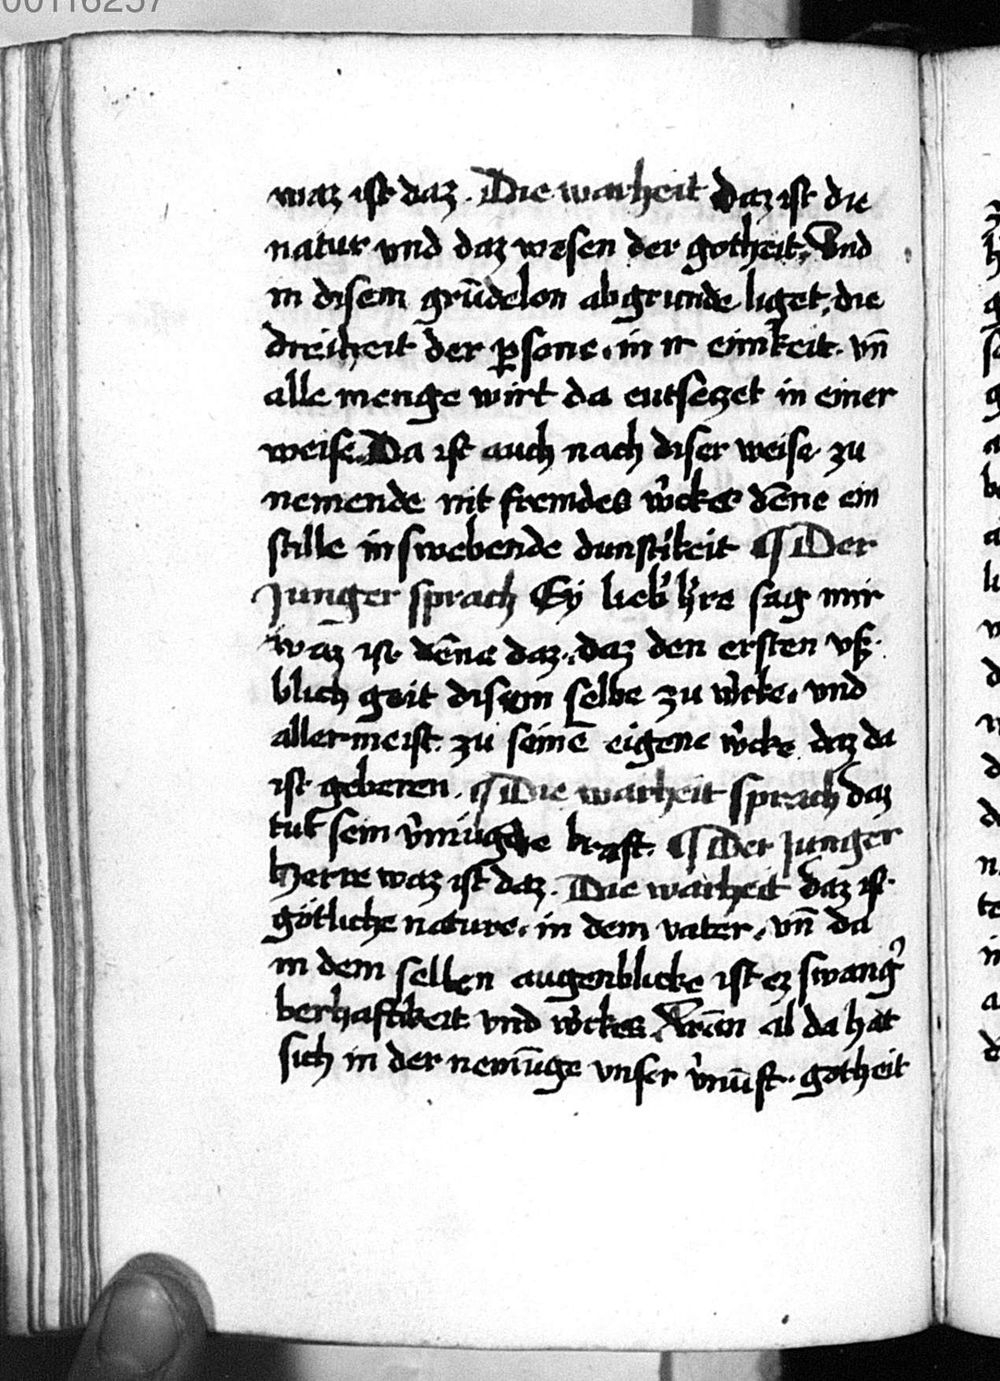 00116257
waz ist daz. Die warheit daz ist die
natur vnd daz wesen der gotheit. Vnd
in disem grūdelon abgrunde liget, die
dreiheit der ꝑsone. in ir einikeit. vn̄
alle menge wirt da entsezet in einer
weise. Da ist auch nach diser weise zu
nemende nit fremdes w̉ckes dēne ein
stille inswebende dunstikeit ¶ Der
Junger sprach Ey lieb̉ h̉re sag mir
waz ist dēne daz. daz den ersten vß
blich geit disem selbe zu w̉cke. vnd
allermeist. zu seinē eigene w̉cke daz da
ist geberen. ¶ Die warheit sprach daz
tut sein v̉mügde kraft. ¶ Der Junger
Herre waz ist daz. Die warheit daz ist
götliche nature. in dem vater. vn̄ da
in dem selben augenblicke ist ez swang̉
berhaftikeit vnd w̉ckes. al da hat
sich in der neмūge vnser v̉nūft. gotheit